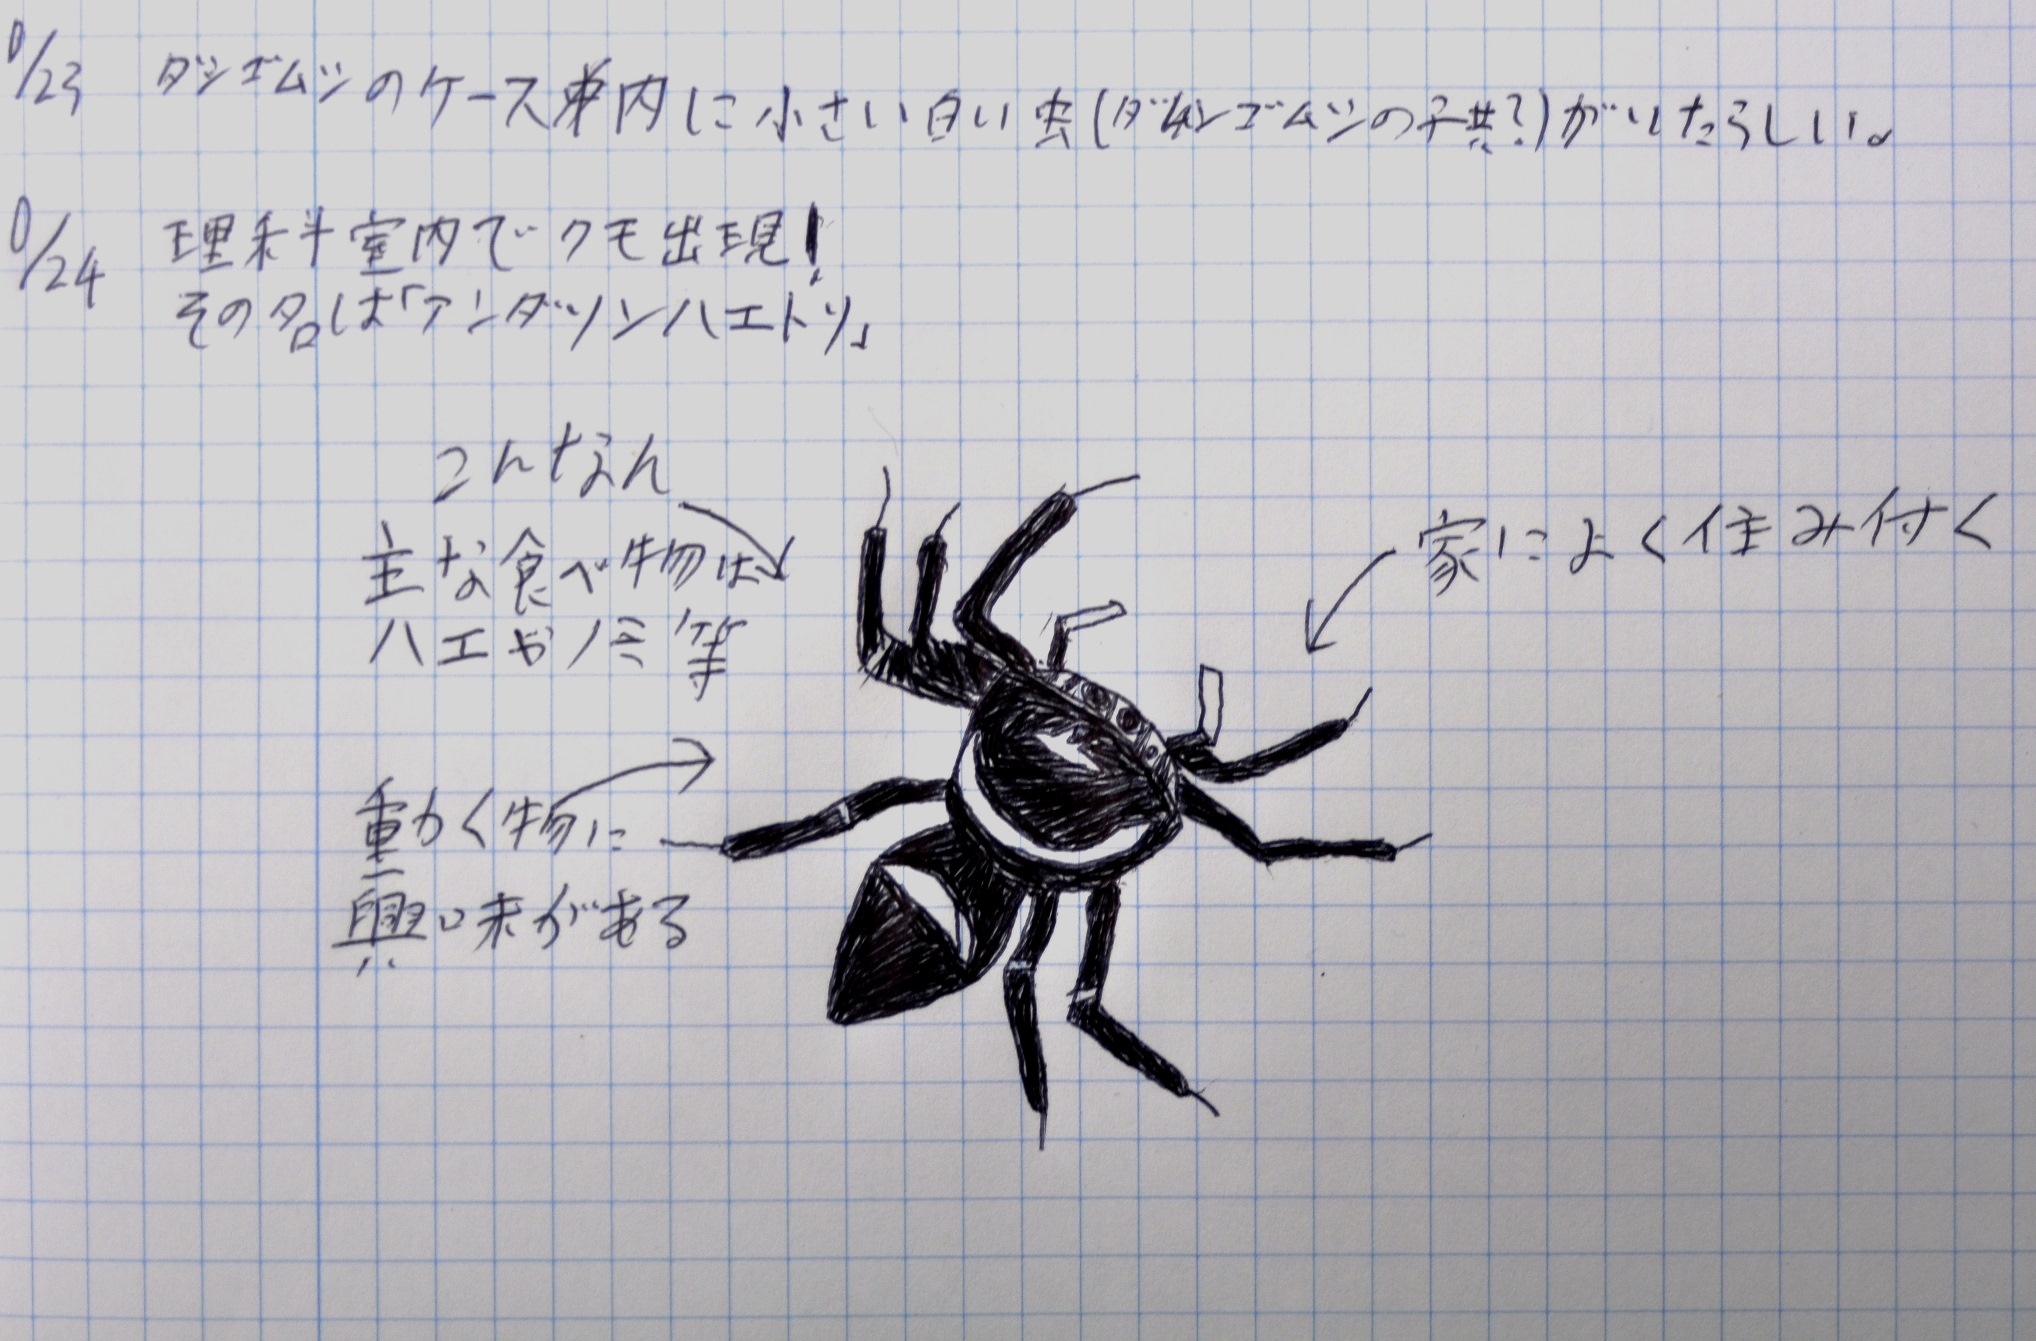 0/23 ダンゴムシのケース内に小さい白い虫(ダンゴムシの子共?)がいたらしい。
0/24 理科室内でクモ出現!
その名は「アンダソンハエトリ」
こんなん
主な食べ物は
ハエやノミ等
家によく住み付く
動く物に
興味がある